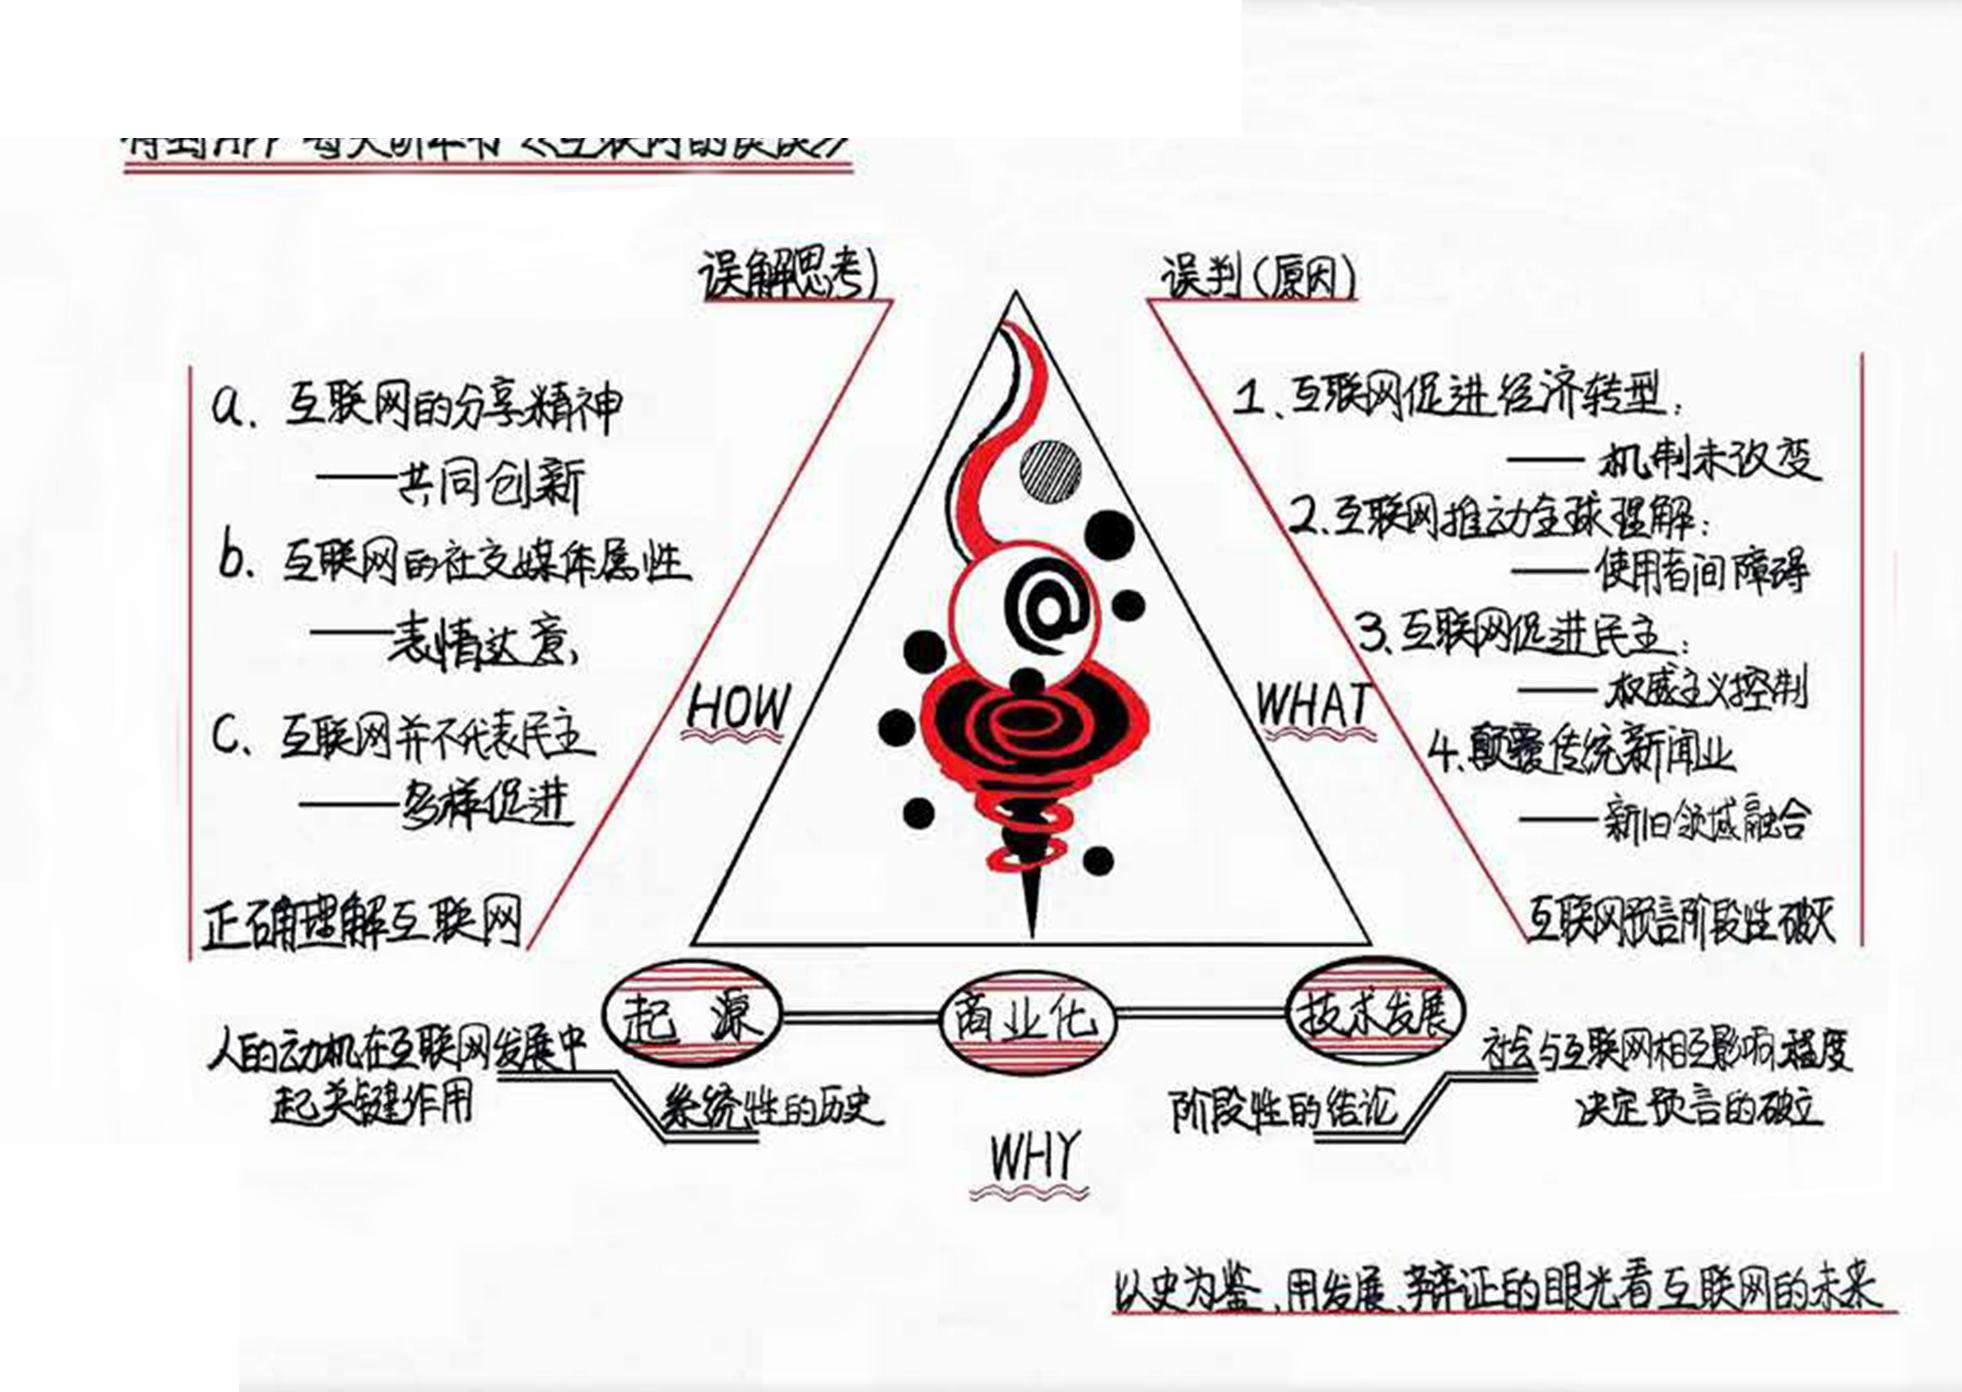 得到APP 每天听本书《互联网的误读》
误解思考)
误判(原因)
a. 互联网的分享精神
——共同创新
b. 互联网的社交媒体属性
——表情达意,
c、互联网并不代表民主
——多样促进
正确理解互联网
HOW
WHAT
1、互联网促进经济转型:
——机制未改变
2.互联网推动全球理解:
——使用者间障碍
3.互联网促进民主:
——权威主义控制
4.颠覆传统新闻业
——新旧领域融合
互联网预言阶段性破灭
起源
商业化
技术发展
人的动机在互联网发展中
起关键作用
系统性的历史
阶段性的结论
社会与互联网相互影响程度
决定预言的破立
WHY
以史为鉴、用发展、辩证的眼光看互联网的未来